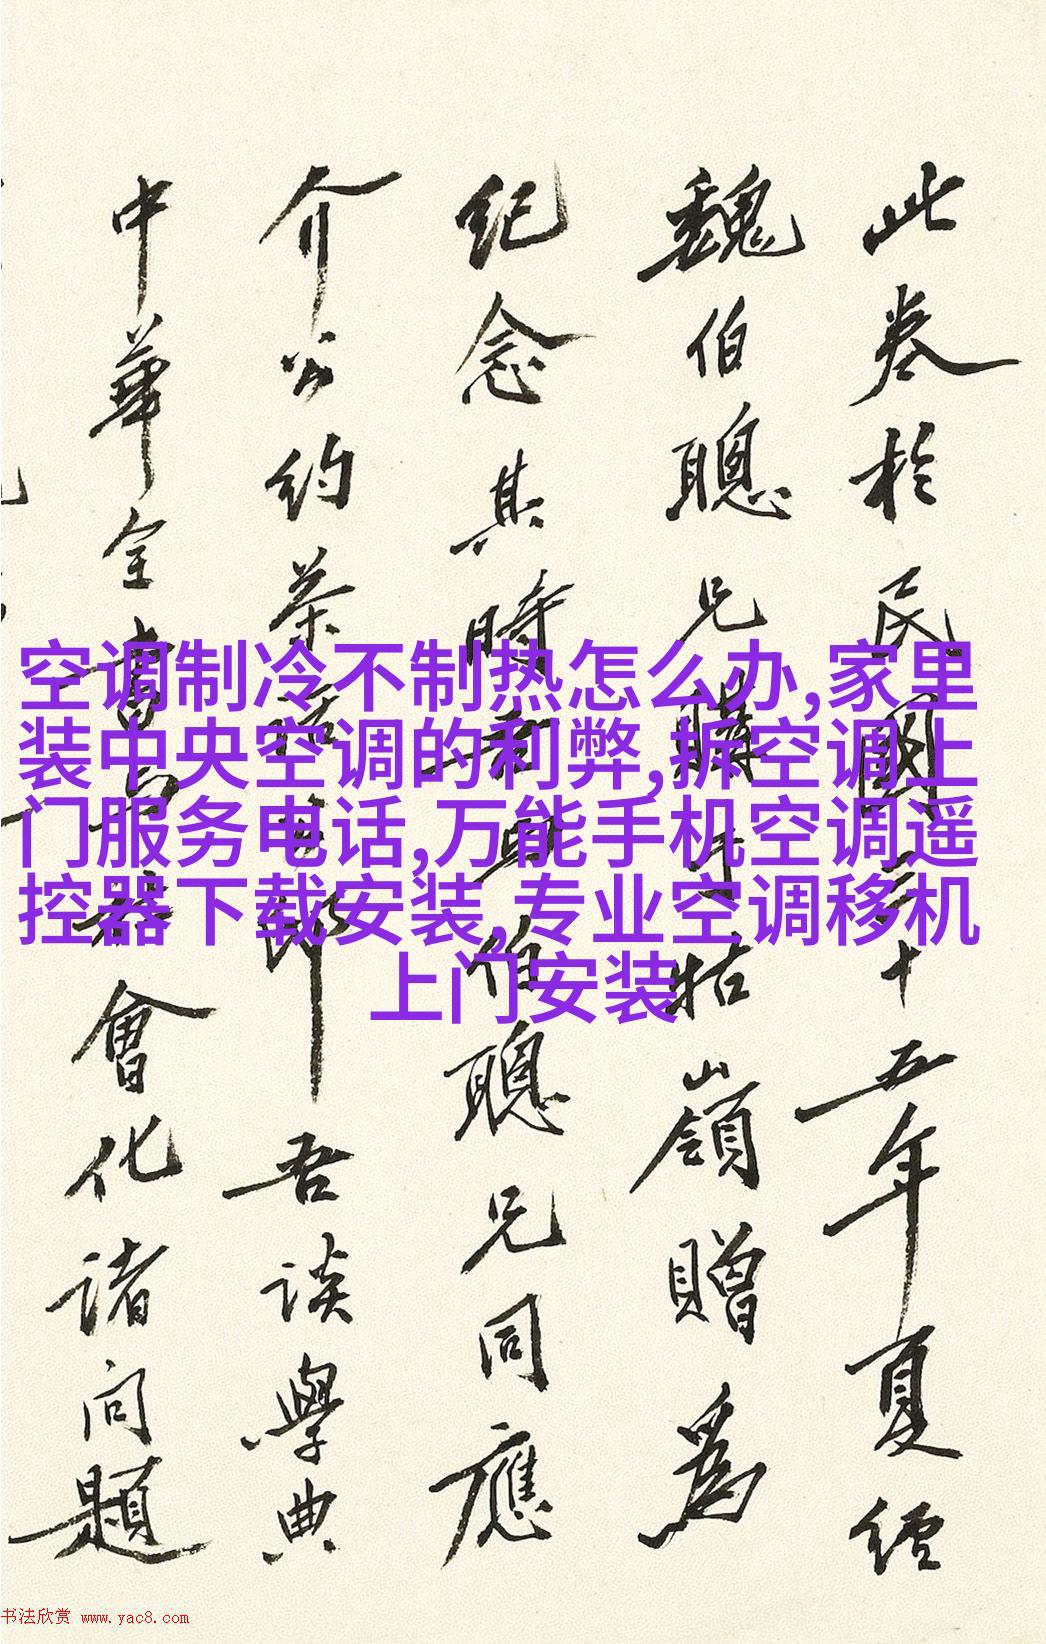 此卷於民國三十五年夏經
魏伯聰兄購于牯嶺贈為
紀念其時伯聰兄同應
介公約茶話吾談學典
中華全書會化諸问題
空调制冷不制热怎么办,家里
装中央空调的利弊,拆空调上
门服务电话,万能手机空调遥
控器下载安装,专业空调移机
上门安装
书法欣赏 www.yac8.com